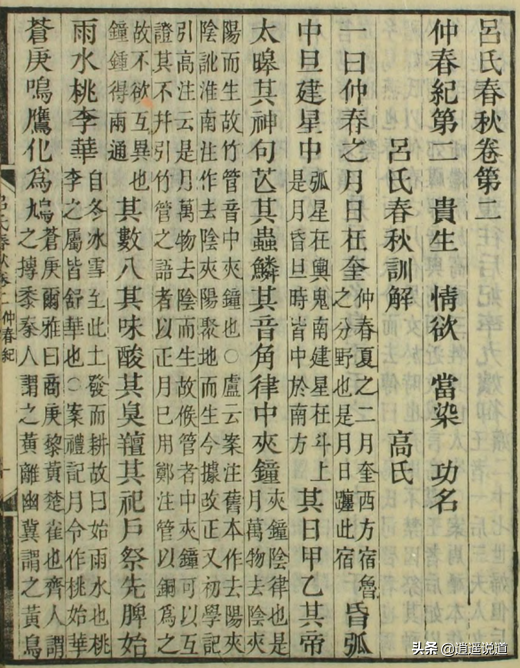 呂氏春秋卷第二
仲春紀第二 貴生 情欲 當染 功名
呂氏春秋訓解 高氏
一曰仲春之月日在奎仲春夏之二月奎西方宿魯之分野也是月日躔此宿昏弧
中旦建星中弧星在輿鬼南建星在斗上是月昏旦時皆中於南方其日甲乙其帝
太皞其神句芒其蟲鱗其音角律中夾鐘夾鐘陰律也是月萬物去陰夾
陽而生故竹管音中夾鐘也○盧云案注舊本作去陽夾
陰訛淮南注作去陰夾陽聚地而生今據改正又初學記
引高注云是月萬物去陰而生故候管者中夾鐘可以互
證其不幷引竹管之語者以正月已用鄭注管以銅爲之
故不欲互異也鐘鍾得兩通其數八其味酸其臭羶其祀戶祭先脾始
雨水桃李華自冬冰雪至此土發而耕故曰始雨水也桃李之屬皆舒華也○案禮記月令作桃始華
蒼庚鳴鷹化爲鳩蒼庚爾雅曰商庚黎黃楚雀也齊人謂之摶黍秦人謂之黃離幽冀謂之黃鳥
呂氏春秋卷二 仲春紀 一
头条 @逍遥说道